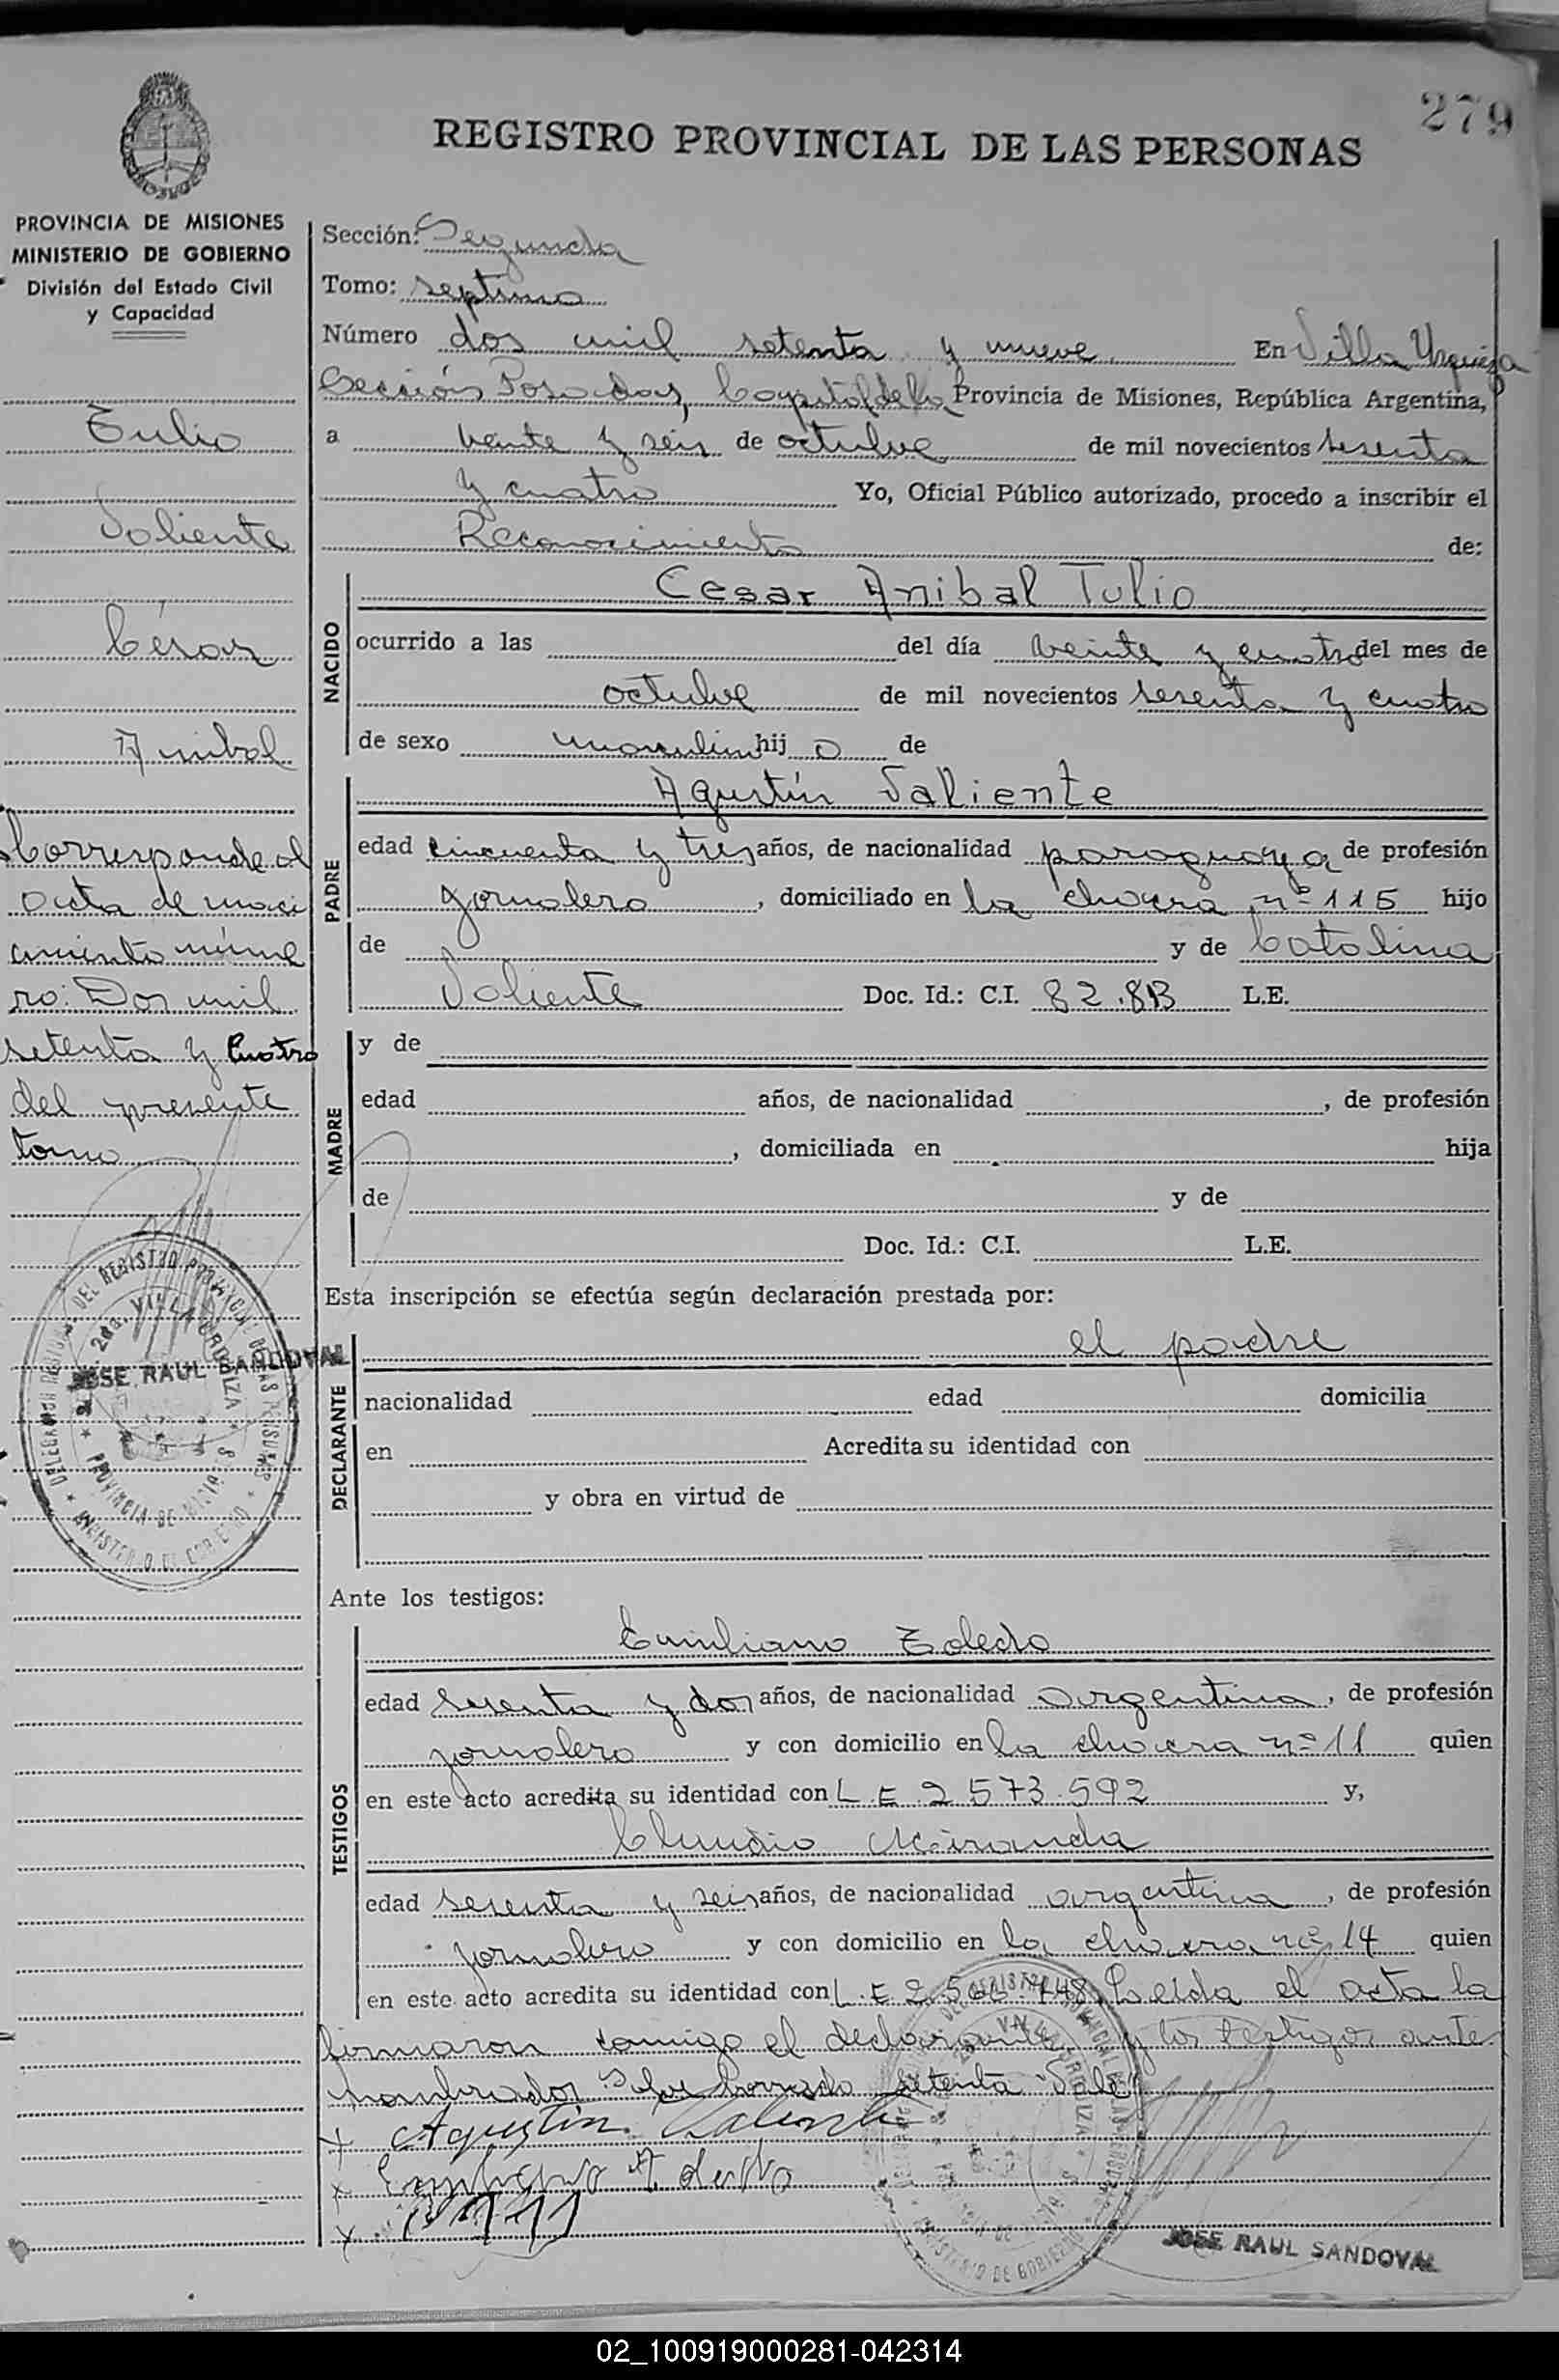 279
REGISTRO PROVINCIAL DE LAS PERSONAS
PROVINCIA DE MISIONES
MINISTERIO DE GOBIERNO
División del Estado Civil
y Capacidad
Tulio
Valiente
César
Anibal
Corresponde al
acta de naci
miento núme
ro: Dos mil
setenta y Cuatro
del presente
tomo
JOSE RAUL SANDOVAL
Sección: Segunda
Tomo: septimo
Número dos mil setenta y nueve En Villa Urquiza
Sección Posadas, Capital de la Provincia de Misiones, República Argentina,
a veinte y seis de octubre de mil novecientos sesenta
y cuatro Yo, Oficial Público autorizado, procedo a inscribir el
Reconocimiento de:
NACIDO
Cesar Anibal Tulio
ocurrido a las del día veinte y cuatro del mes de
octubre de mil novecientos sesenta y cuatro
de sexo masculino hij o de
PADRE
Agustín Valiente
edad cincuenta y tres años, de nacionalidad paraguaya de profesión
jornalero, domiciliado en la chacra nº 115 hijo
de y de Catalina
Valiente Doc. Id.: C.I. 82.813 L.E.
MADRE
y de
edad años, de nacionalidad , de profesión
, domiciliada en hija
de y de
Doc. Id.: C.I. L.E.
Esta inscripción se efectúa según declaración prestada por:
DECLARANTE
el padre
nacionalidad edad domicilia
en Acredita su identidad con
y obra en virtud de
Ante los testigos:
TESTIGOS
Emiliano Toledo
edad sesenta y dos años, de nacionalidad argentina, de profesión
jornalero y con domicilio en la chacra nº 11 quien
en este acto acredita su identidad con L.E 2.573.592 y,
Claudio Miranda
edad sesenta y seis años, de nacionalidad argentina, de profesión
jornalero y con domicilio en la chacra nº 14 quien
en este acto acredita su identidad con L.E 2.566.748. Leída el acta la
firmaron conmigo el declarante y los testigos ante
nombrados Sobre borrado setenta "Vale"
x Agustin Valiente
x
x
JOSE RAUL SANDOVAL
02_100919000281-042314